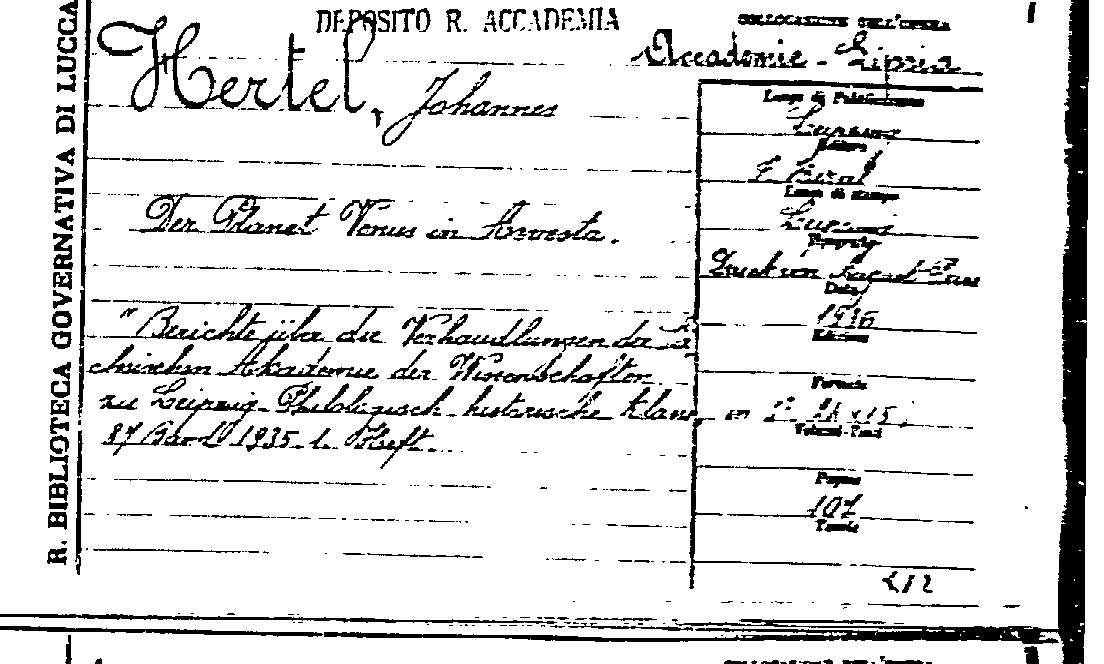 R. BIBLIOTECA GOVERNATIVA DI LUCCA
DEPOSITO R. ACCADEMIA
Hertel, Johannes
Der Planet Venus in Avesta.
"Berichte über die Verhandlungen der Sä
chsischen Akademie der Wissenschaften
zu Leipzig-Philologisch-historische Klasse
87 Band 1935. 1. Heft.
COLLOCAZIONE DELL'OPERA
Accademie - Lipsia
Luogo di Pubblicazione
Editore
S. Hirzel
Luogo di stampa
Data
1936
Edizione
Formato
in 8° 24 x 15.
Volumi-Parti
Pagine
107
Tavole
COLLOCAZIONE DELL'OPERA